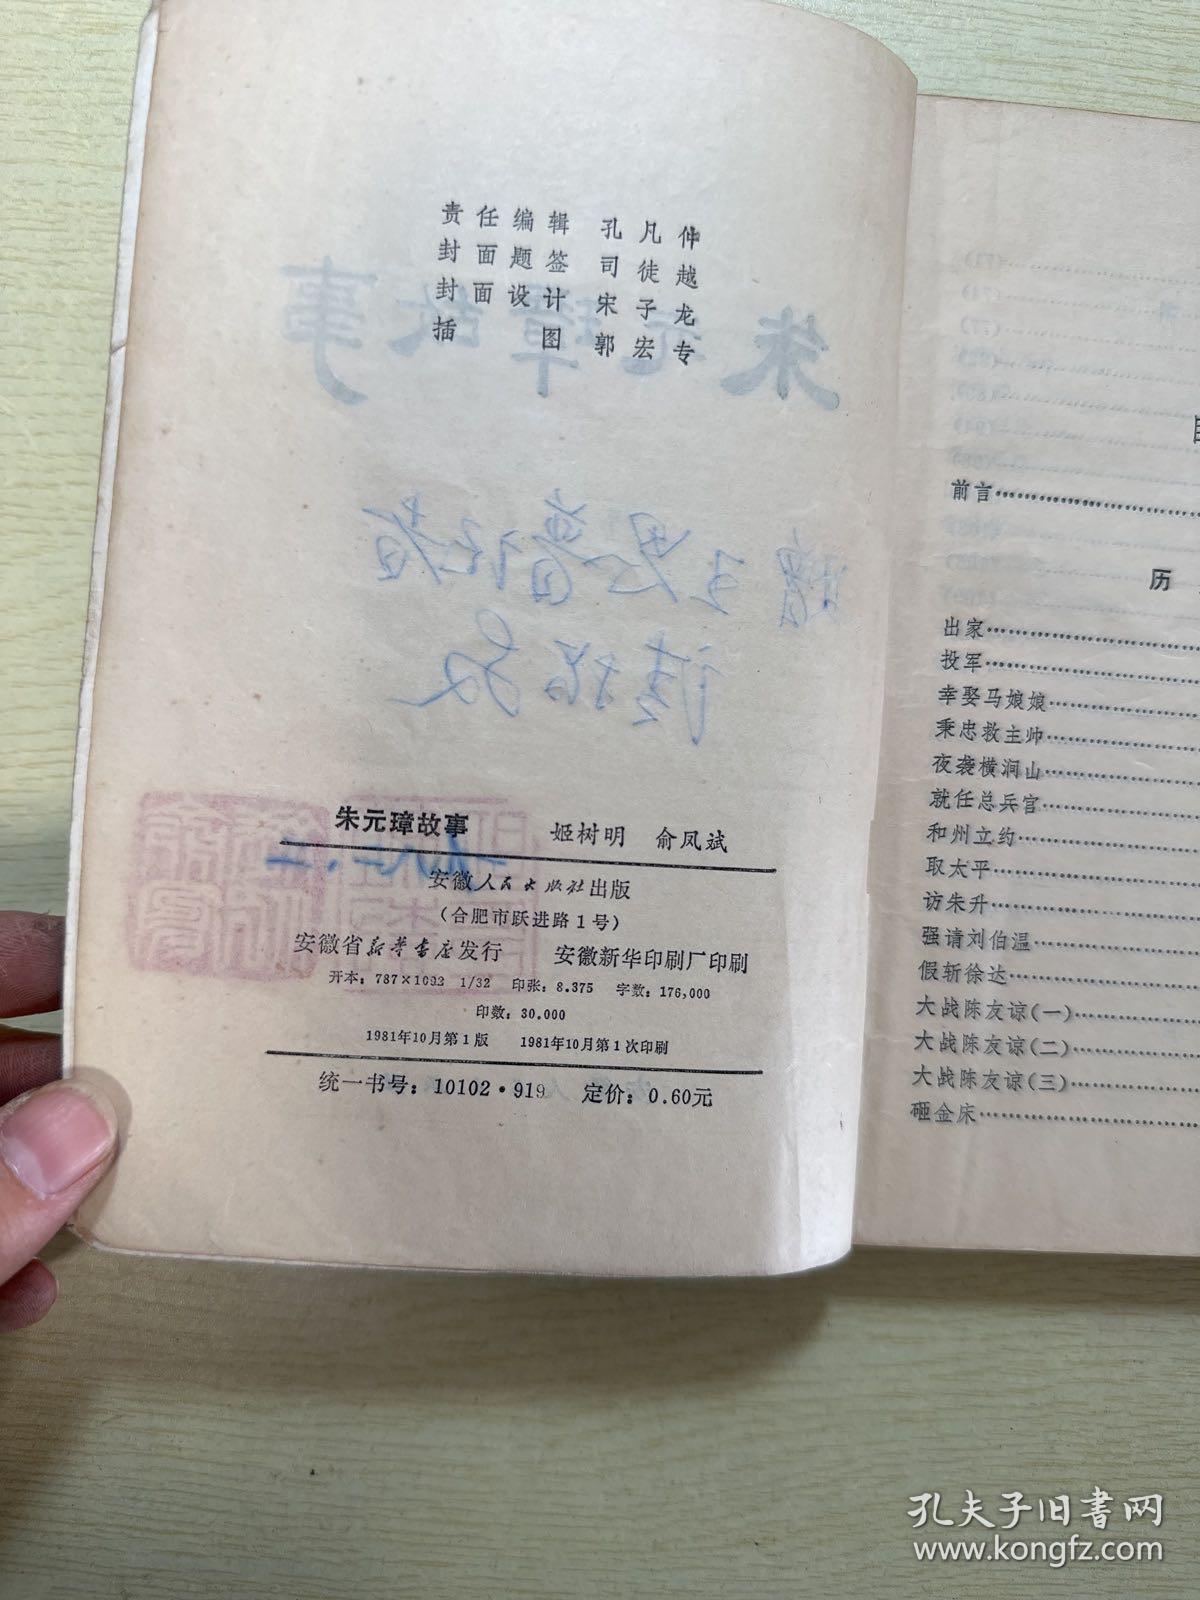 责任编辑 孔凡仲
封面题签 司徒越
封面设计 宋子龙
插图 郭宏专
朱元璋故事
朱元璋故事 姬树明 俞凤斌
安徽人民出版社出版
(合肥市跃进路1号)
安徽省新华书店发行 安徽新华印刷厂印刷
开本：787×1092 1/32 印张：8.375 字数：176,000
印数：30.000
1981年10月第1版 1981年10月第1次印刷
统一书号：10102·919 定价：0.60元
前言
历
出家
投军
幸娶马娘娘
秉忠救主帅
夜袭横涧山
就任总兵官
和州立约
取太平
访朱升
强请刘伯温
假斩徐达
大战陈友谅(一)
大战陈友谅(二)
大战陈友谅(三)
砸金床
孔夫子旧书网
www.kongfz.com